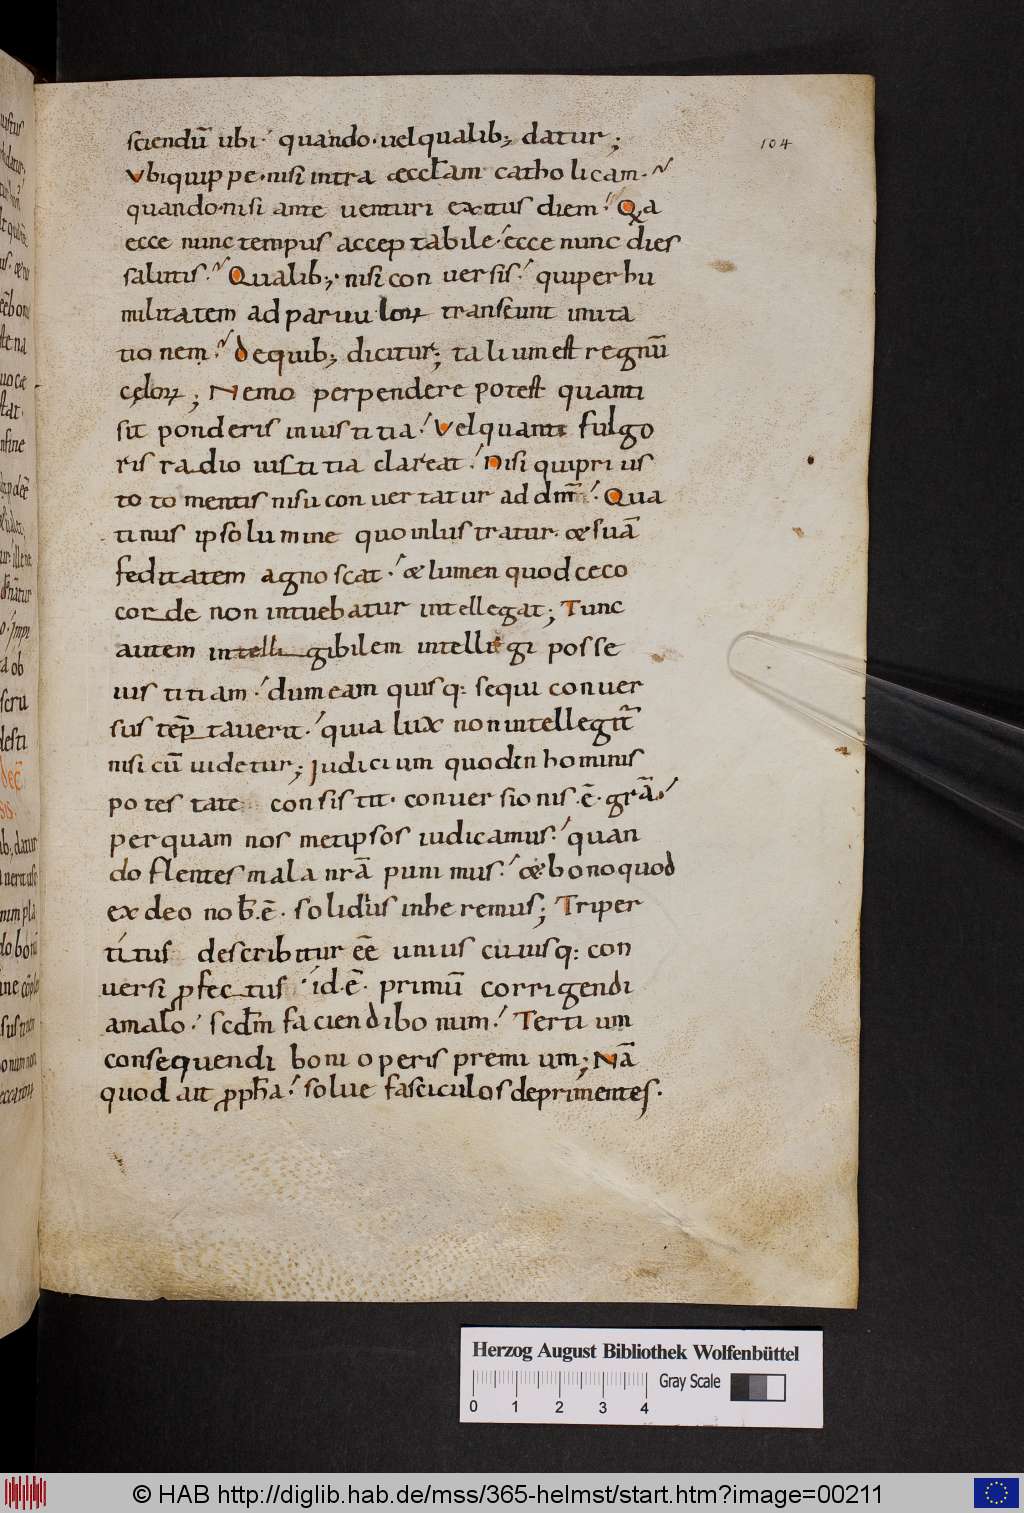 104
sciendū ubi· quando· uel qualib; datur;
Vbi quippe· nisi intra æccłam catholicam·
quando· nisi ante uenturi exitus diem· Qa
ecce nunc tempus acceptabile· ecce nunc dies
salutis· Qualib;· nisi conuersis· qui per hu
militatem ad paruuloꝝ transeunt imita
tionem· de quib; dicitur; talium est regnū
cęloꝝ; Nemo perpendere potest quanti
sit ponderis iniustitia· Vel quanti fulgo
ris radio iustitia clareat· Nisi qui prius
toto mentis nisu conuertatur ad dm̄· Qua
tinus ipso lumine quo inlustratur· & suā
feditatem agnoscat· & lumen quod ceco
corde non intuebatur intellegat; Tunc
autem intelligibilem intelligi posse
iustitiam· dum eam quisq: sequi conuer
sus tēptauerit· quia lux non intellegit̄
nisi cū uidetur; Iudicium quod in hominis
potestate consistit· conuersionis·ē· grā·
per quam nos met ipsos iudicamus· quan
do flentes mala nrā punimus· & bono quod
ex deo nob·ē· solidius inheremus; Triper
titus describitur ēē unius cuiusq: con
uersi ꝓfectus· id·ē· primū corrigendi
a malo· scdm̄ faciendi bonum· Tertium
consequendi boni operis premium; Nā
quod ait ꝓpħa· solue fasciculos deprimentes·
Herzog August Bibliothek Wolfenbüttel
Gray Scale
0 1 2 3 4
© HAB http://diglib.hab.de/mss/365-helmst/start.htm?image=00211